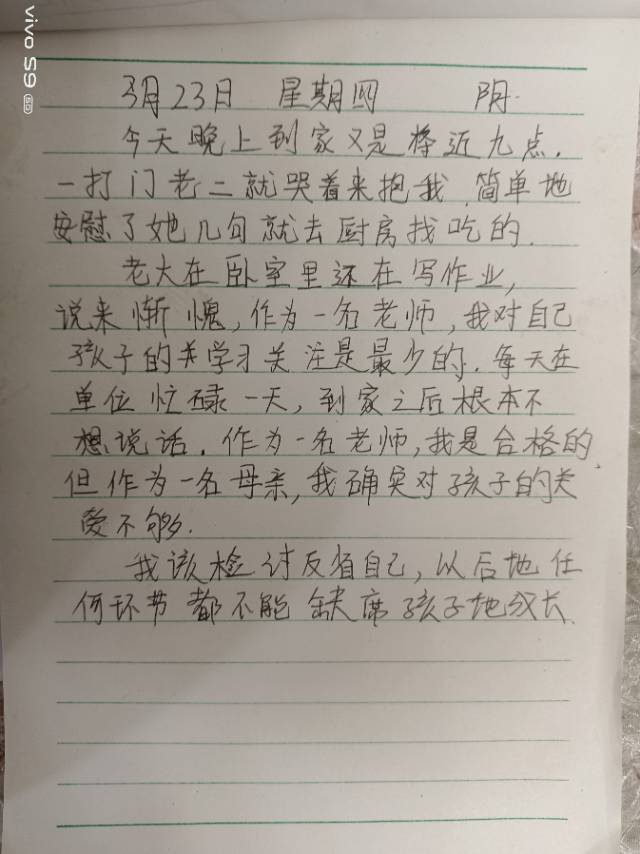 vivo S9 5G
3月23日 星期四 阴.
今天晚上到家又是将近九点.
一打门老二就哭着来抱我.简单地
安慰了她几句就去厨房找吃的.
老大在卧室里还在写作业,
说来惭愧,作为一名老师,我对自己
孩子的关学习关注是最少的.每天在
单位忙碌一天,到家之后根本不
想说话.作为一名老师,我是合格的,
但作为一名母亲,我确实对孩子的关
爱不够.
我该检讨反省自己,以后地任
何环节都不能缺席孩子地成长.